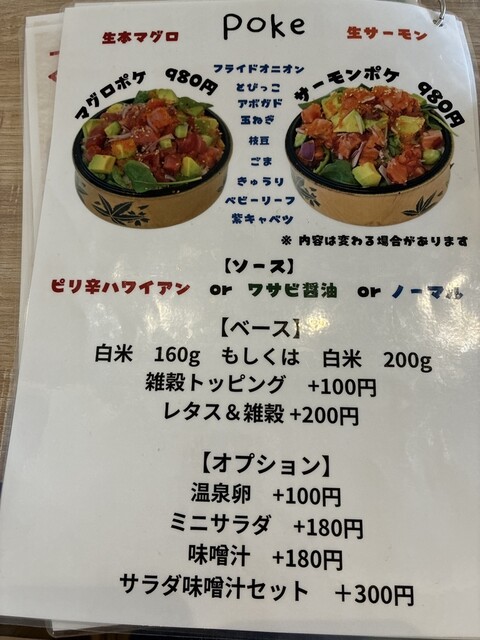 Poke
生本マグロ
生サーモン
マグロポケ 980円
サーモンポケ 980円
フライドオニオン
とびっこ
アボガド
玉ねぎ
枝豆
ごま
きゅうり
ベビーリーフ
紫キャベツ
※ 内容は変わる場合があります
【ソース】
ピリ辛ハワイアン or ワサビ醤油 or ノーマル
【ベース】
白米 160g もしくは 白米 200g
雑穀トッピング +100円
レタス＆雑穀 +200円
【オプション】
温泉卵 +100円
ミニサラダ +180円
味噌汁 +180円
サラダ味噌汁セット ＋300円